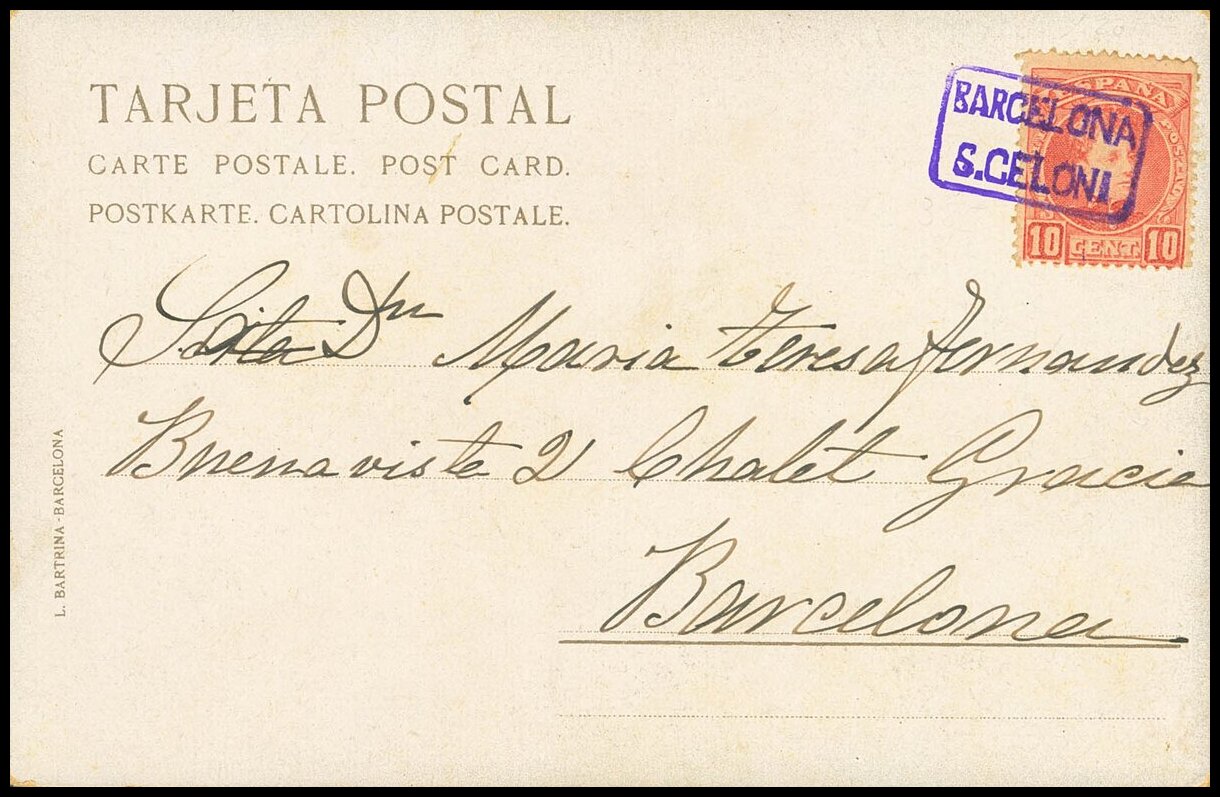 TARJETA POSTAL
CARTE POSTALE. POST CARD.
POSTKARTE. CARTOLINA POSTALE.
BARCELONA
S.CELONI
ESPAÑA
10 CENT. 10
Srita Dña Maria Teresa Fernandez
Buenavista 2 Chalet Gracia
Barcelona
L. BARTRINA - BARCELONA